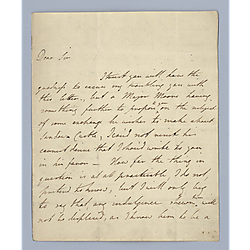 Dear Sir
I trust you will have the
goodness to excuse my troubling you with
this letter, but a Major Moore having
something further to propose on the subject
of some exchange he wishes to make about
Sandown Castle, I could not resist he
cannot desire that I should write to you
in his favor — How far the thing in
question is at all practicable, I do not
pretend to know, but I will only beg
to say that any indulgence shewn will
not be misplaced, as I know him to be a